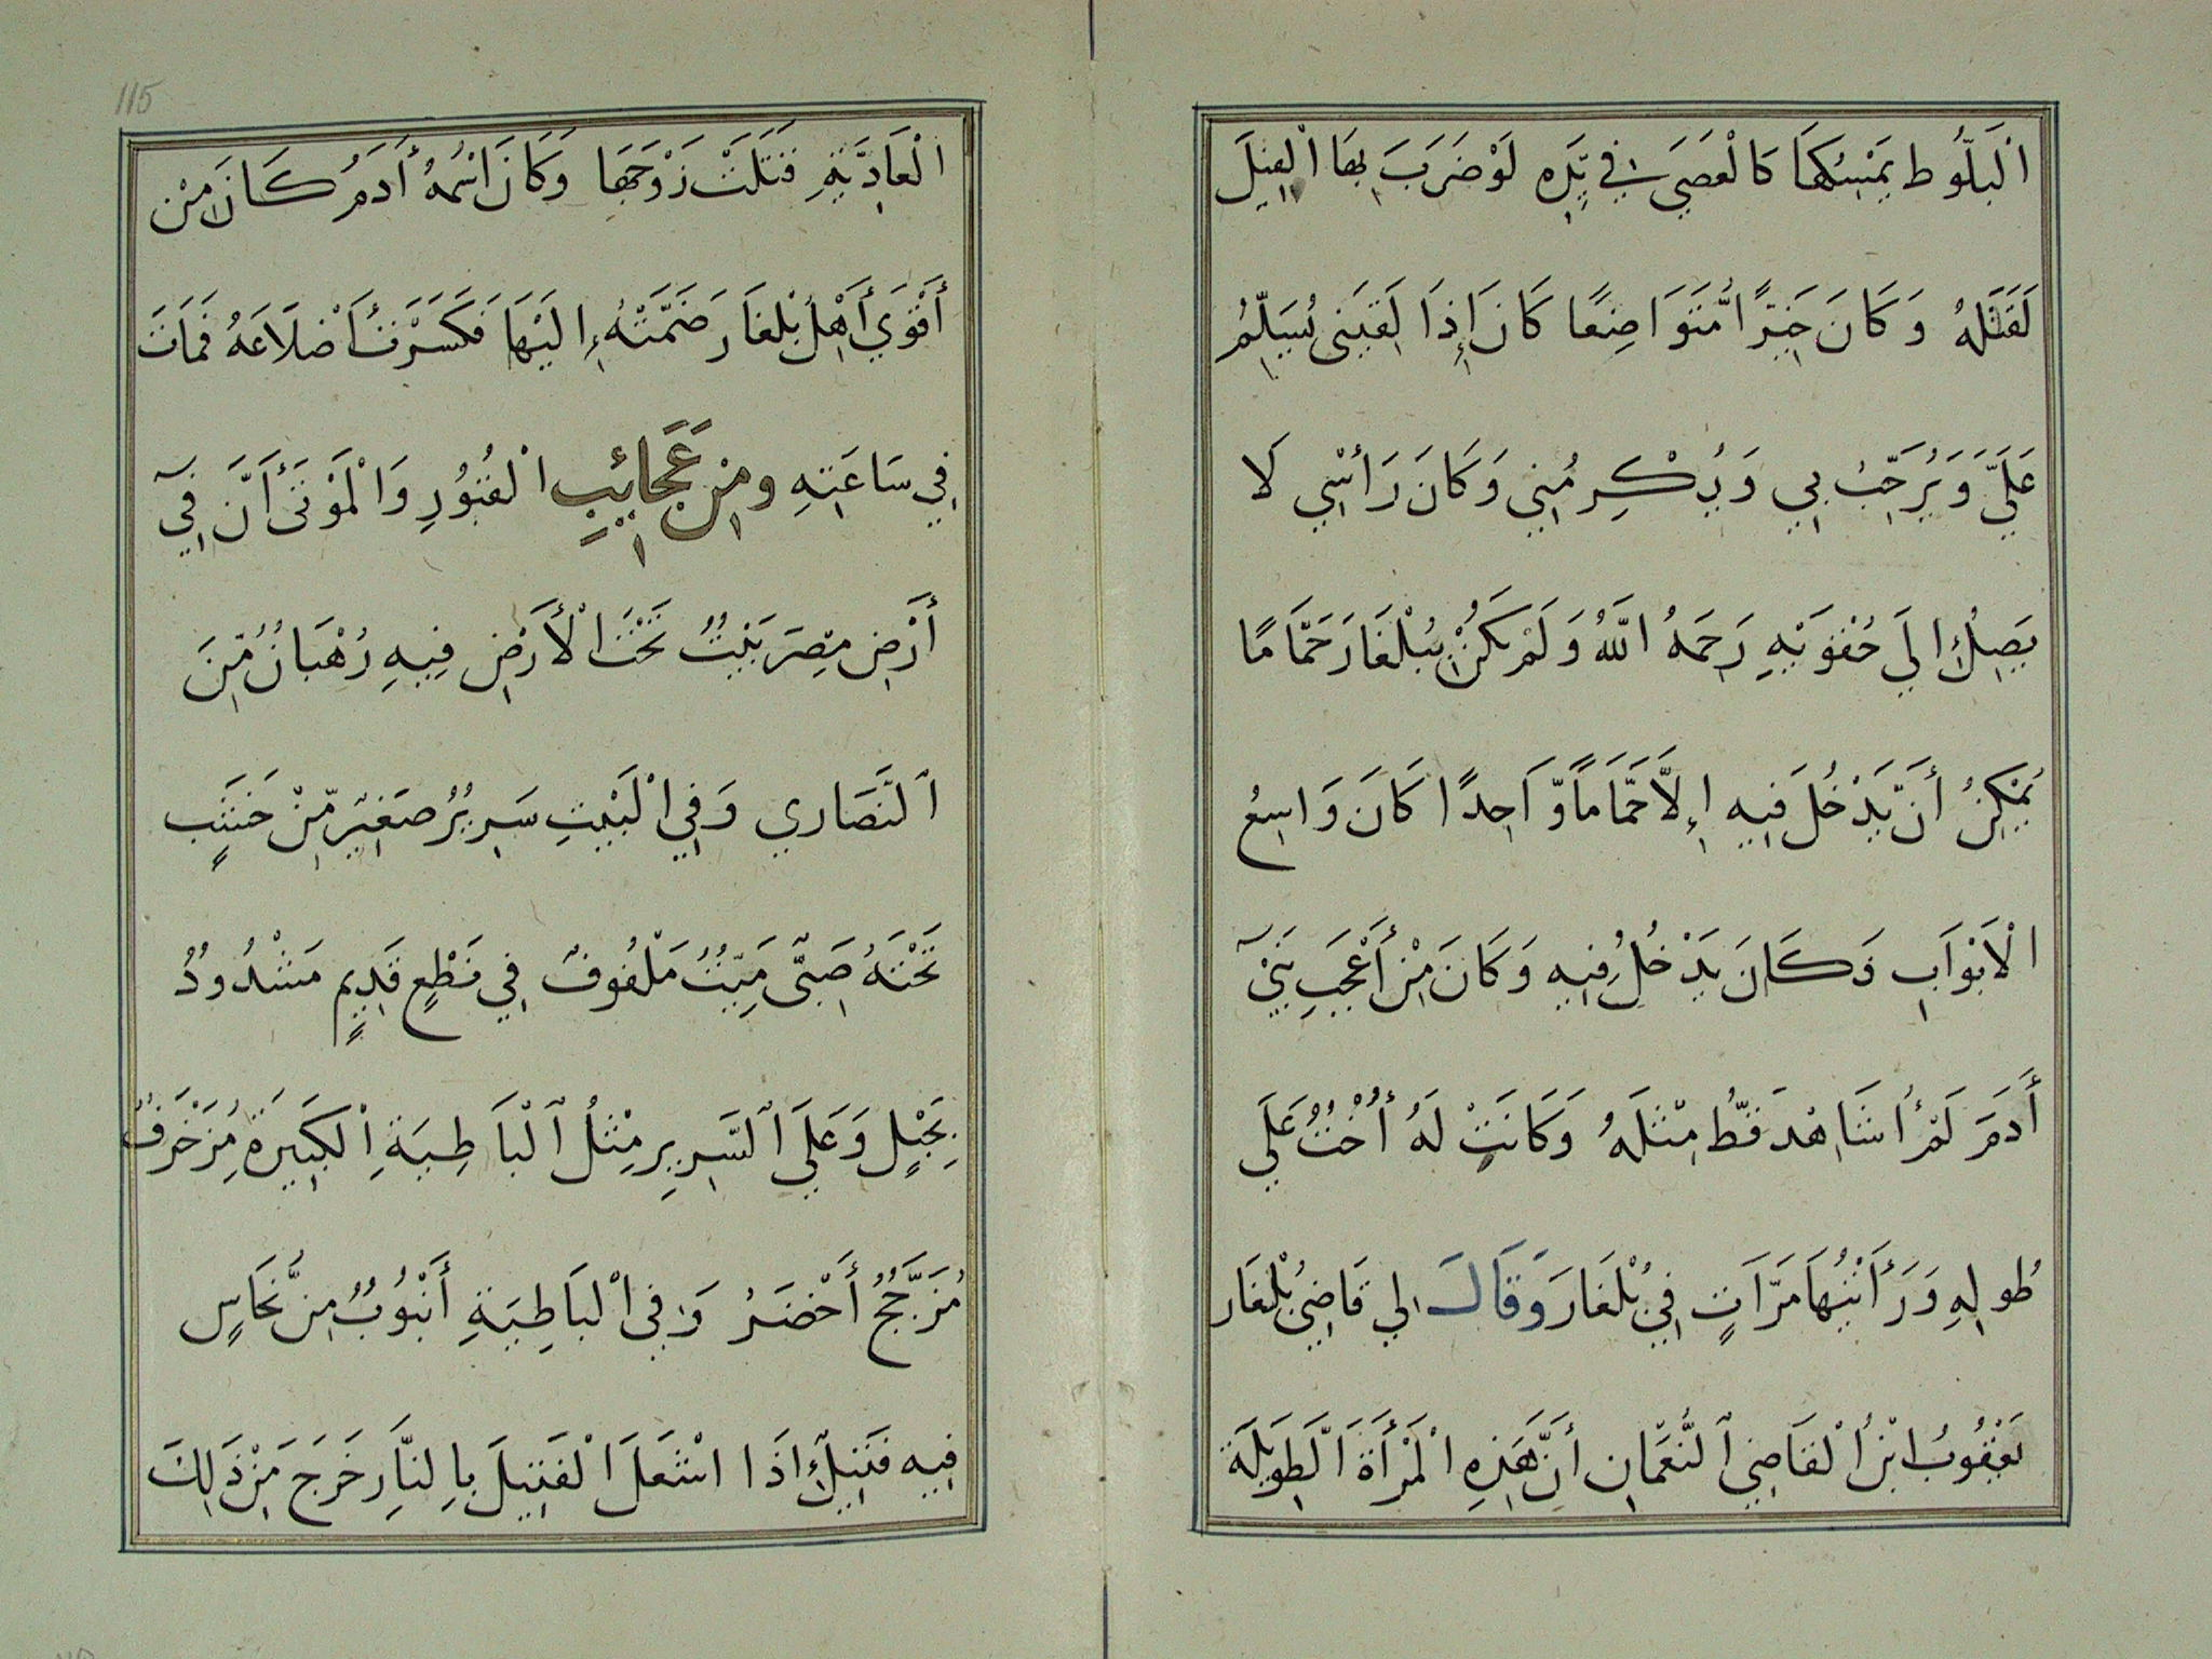 الْبَلُّوط يَمْسِكُهَا كَالْعَصَي فِي يَدِه لَوْ ضَرَبَ بِهَا الْفِيلَ
لَقَتَلَهُ وَكَانَ خَيِّرًا مُّتَوَاضِعًا كَانَ إِذَا لَقِيَنِي يُسَلِّمُ
عَلَيَّ وَيُرَحِّبُ بِي وَيُكْرِمُنِي وَكَانَ رَأْسِي لَا
يَصِلُ إِلَي حُقْوَيْهِ رَحِمَهُ اللَّهُ وَلَمْ يَكُنْ بِبُلْغَارَ حَمَّامًا
يُمْكِنُ أَنْ يَّدْخُلَ فِيهِ إِلَّا حَمَّامًا وَّاحِدًا كَانَ وَاسِعُ
الْأَبْوَابِ فَكَانَ يَدْخُلُ فِيهِ وَكَانَ مِنْ أَعْجَبِ بَنِيٓ
أَدَمَ لَمْ أُشَاهِدْ قَطُّ مِثْلَهُ وَكَانَتْ لَهُ أُخْتُ عَلَي
طُولِهِ وَرَأَيْتُهَا مَرَّاتٍ فِي بُلْغَارَ وَقَالَ لِي قَاضِيُ بُلْغَار
يَعْقُوبُ ابْنُ الْقَاضِي النُّعْمَانِ أَنَّ هَذِهِ الْمَرْأَةَ الطَّوِيلَةَ
115
الْعَادِيَّةِ قَتَلَتْ زَوْجَهَا وَكَانَ اسْمُهُ أَدَمُ كَانَ مِنْ
أَقْوَي أَهْلِ بُلْغَارَ ضَمَّتْهُ إِلَيْهَا فَكَسَّرَتْ أَضْلَاعَهُ فَمَاتَ
فِي سَاعَتِهِ ومِنْ عَجَائِبِ الْقُبُورِ وَالْمَوْتَى أَنَّ فِيٓ
أَرْضِ مِصْرَ بَيْتُ تَحْتَ الْأَرْضِ فِيهِ رُهْبَانُ مِّنَ
النَّصَارَي وَفِي الْبَيْتِ سَرِيرُ صَغِيرُ مِّنْ خَشَبٍ
تَحْتَهُ صَبِيٌّ مَيِّتُ مَلْفُوفُ فِي نَطْعٍ قَدِيمٍ مَشْدُودُ
بِحَبْلٍ وَعَلَي السَّرِيرِ مِثْلُ الْبَاطِيَةِ الْكَبِيرَةِ مُزَخْرَفُ
مُزَجَّجُ أَخْضَرُ وَفِي الْبَاطِيَةِ أَنْبُوبُ مِنْ نُّحَاسٍ
فِيهِ فَتِيلُ إِذَا اشْتَعَلَ الْفَتِيلَ بِالنَّارِ خَرَجَ مِنْ ذَلِكَ